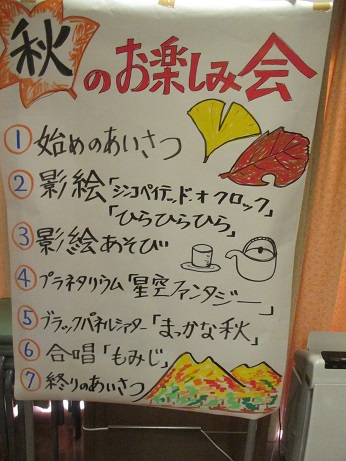 秋のお楽しみ会
①始めのあいさつ
②影絵「ジコペイテンド.オクロック」
「ひらひらひら」
③影絵あそび
④プラネタリウム「星空ファンタジー」
⑤ブラックパネルシアター「まっかな秋」
⑥合唱「もみじ」
⑦終りのあいさつ